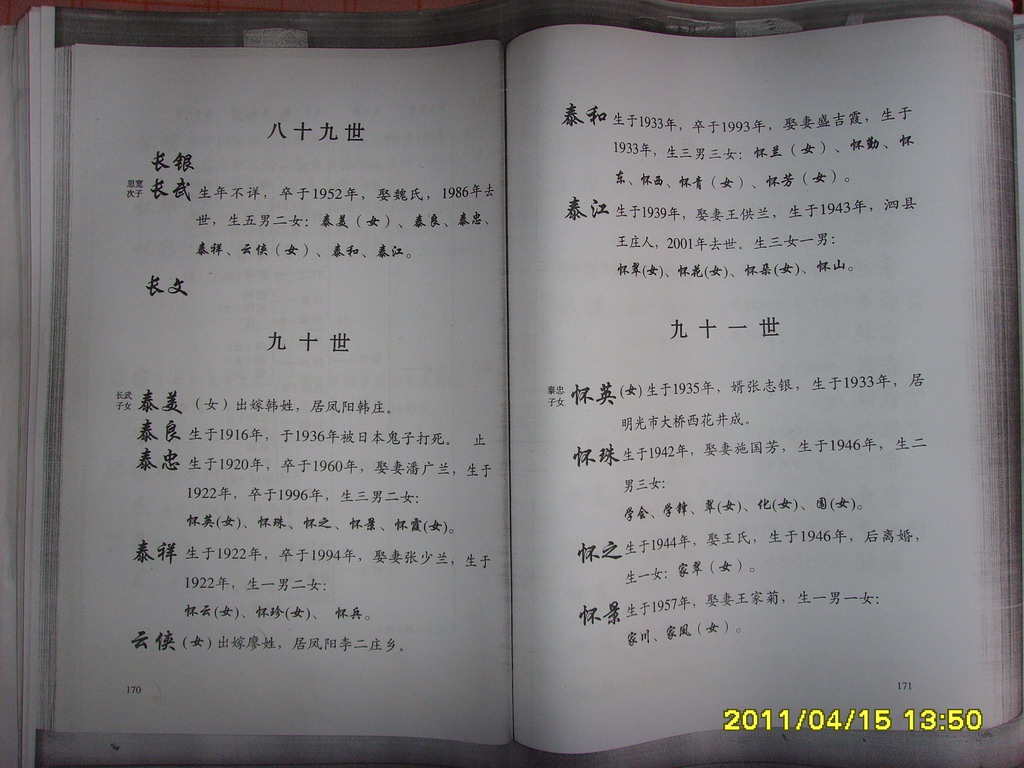 八十九世
长银
思宽
次子
长武 生年不详，卒于1952年，娶魏氏，1986年去
世，生五男二女：泰美（女）、泰良、泰忠、
泰祥、云侠（女）、泰和、泰江。
长文
九十世
长武
子女
泰美 （女）出嫁韩姓，居凤阳韩庄。
泰良 生于1916年，于1936年被日本鬼子打死。 止
泰忠 生于1920年，卒于1960年，娶妻潘广兰，生于
1922年，卒于1996年，生三男二女：
怀英(女)、怀珠、怀之、怀景、怀霞(女)。
泰祥 生于1922年，卒于1994年，娶妻张少兰，生于
1922年，生一男二女：
怀云(女)、怀珍(女)、 怀兵。
云侠（女）出嫁廖姓，居凤阳李二庄乡。
170
泰和 生于1933年，卒于1993年，娶妻盛吉霞，生于
1933年，生三男三女：怀兰（女）、怀勤、怀
东、怀西、怀青（女）、怀芳（女）。
泰江 生于1939年，娶妻王供兰，生于1943年，泗县
王庄人，2001年去世。生三女一男：
怀翠(女)、怀花(女)、怀朵(女)、怀山。
九十一世
泰忠
子女
怀英(女)生于1935年，婿张志银，生于1933年，居
明光市大桥西花井成。
怀珠 生于1942年，娶妻施国芳，生于1946年，生二
男三女：
学会、学锋、翠(女)、化(女)、圆(女)。
怀之 生于1944年，娶王氏，生于1946年，后离婚，
生一女：家翠（女）。
怀景 生于1957年，娶妻王家菊，生一男一女：
家川、家凤（女）。
171
2011/04/15 13:50